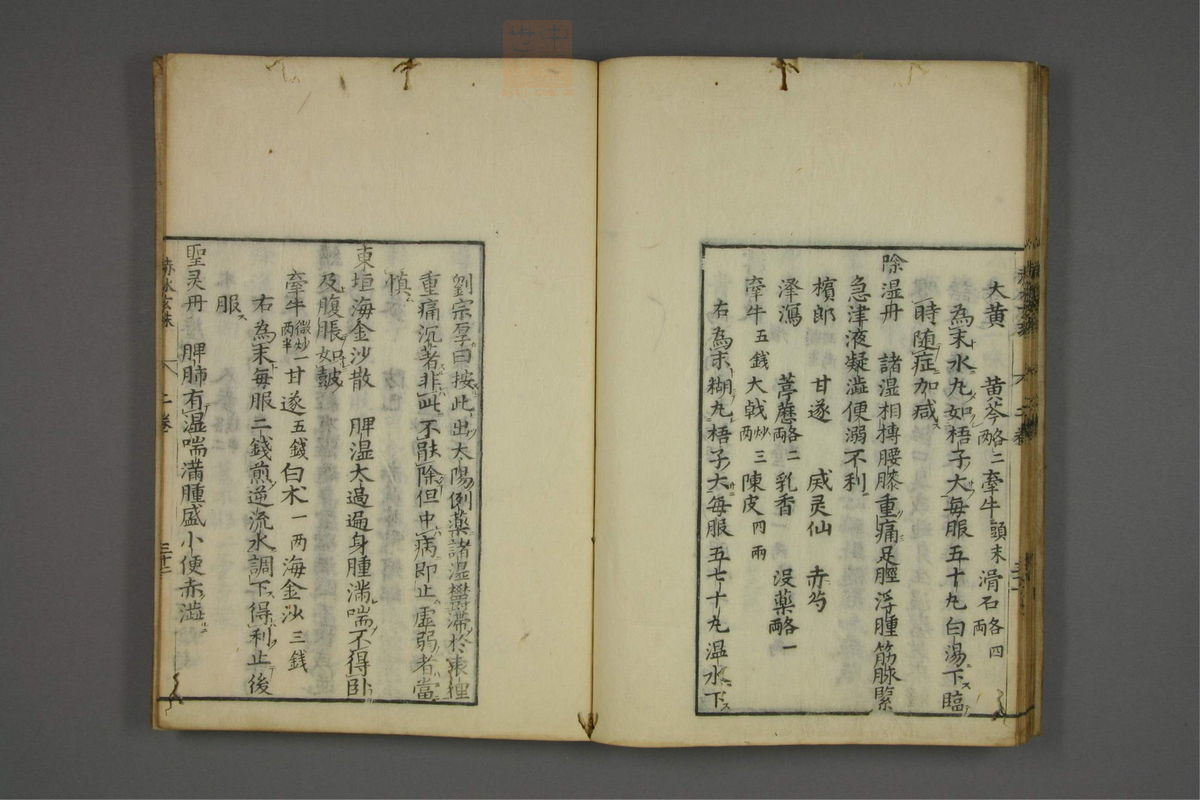 大黄　黄芩各二両　牽牛頭末　滑石各四両
為末水丸如梧子大毎服五十丸白湯下臨
時随症加减
除湿丹　諸湿相搏腰膝重痛足脛浮腫筋脉緊
急津液凝澁便溺不利
檳郎　甘遂　威灵仙　赤芍
澤瀉　葶藶各二両　乳香　没藥各一両
牽牛五錢　大戟炒三両　陳皮四兩
右為末糊丸梧子大毎服五七十丸温水下
劉宗厚曰按此出太陽例藥諸湿鬱滞於表裡
重痛沉著非此不能除但中病即止虚弱者當
慎
東垣海金沙散　脾湿太過遍身腫滿喘不得卧
及腹脹如皷
牽牛微炒一両半　甘遂五錢　白木一两　海金沙三錢
右為末毎服二錢煎逆流水調下得利止後
服
聖灵丹　脾肺有湿喘滿腫盛小便赤澁
赤水玄珠　二巻